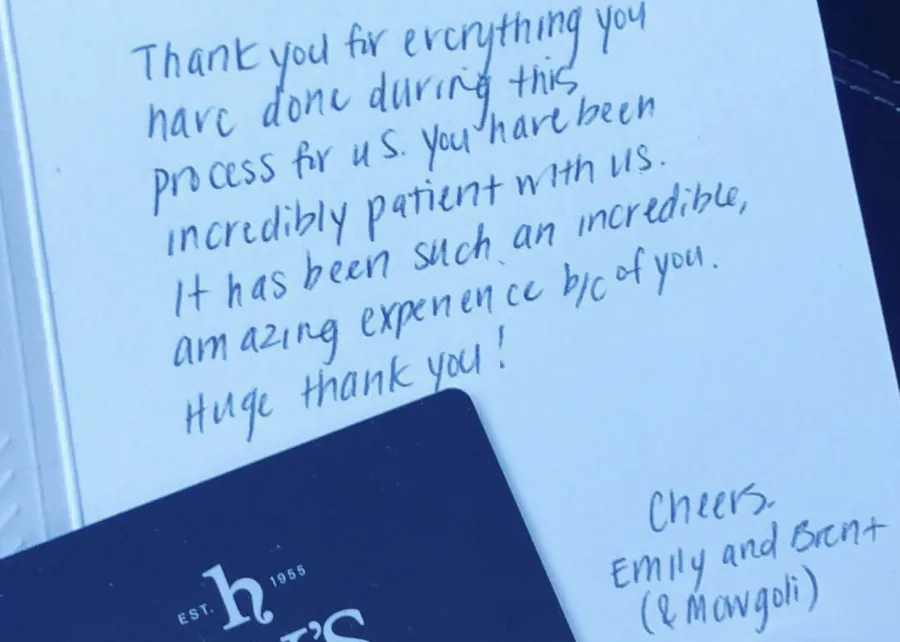 Thank you for everything you
have done during this
process for us. You have been
incredibly patient with us.
It has been such an incredible,
amazing experience b/c of you.
Huge thank you!
Cheers.
Emily and Brent
(& Mowgoli)
EST. h 1955
'S